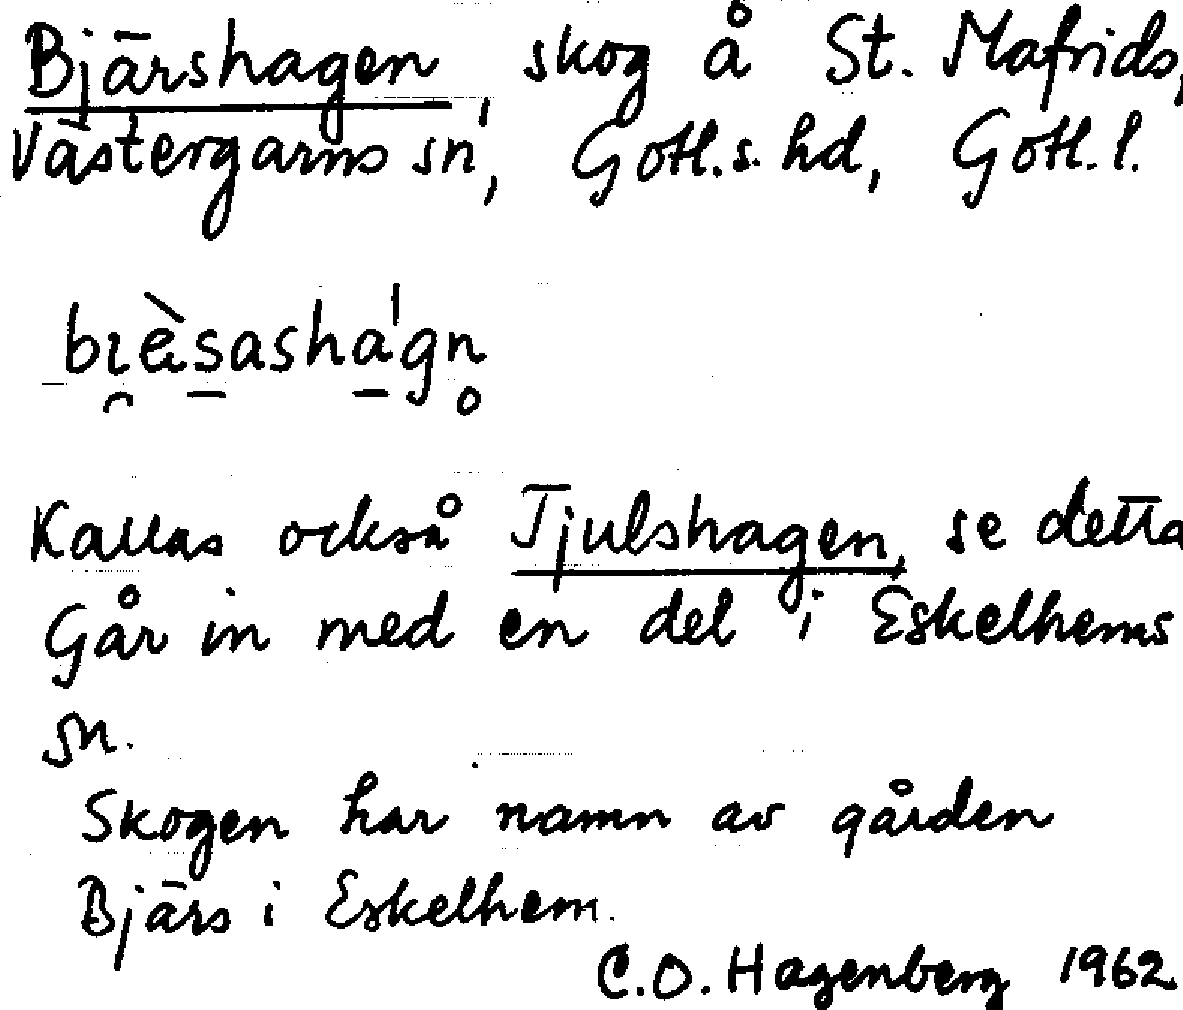 Bjärshagen, skog å St. Mafrids,
Västergarns sn, Gotl.s. hd, Gotl. l.
Kallas också Tjulshagen, se detta
Går in med en del i Eskelhems
sn.
Skogen har namn av gården
Bjärs i Eskelhem.
C.O. Hagenberg 1962